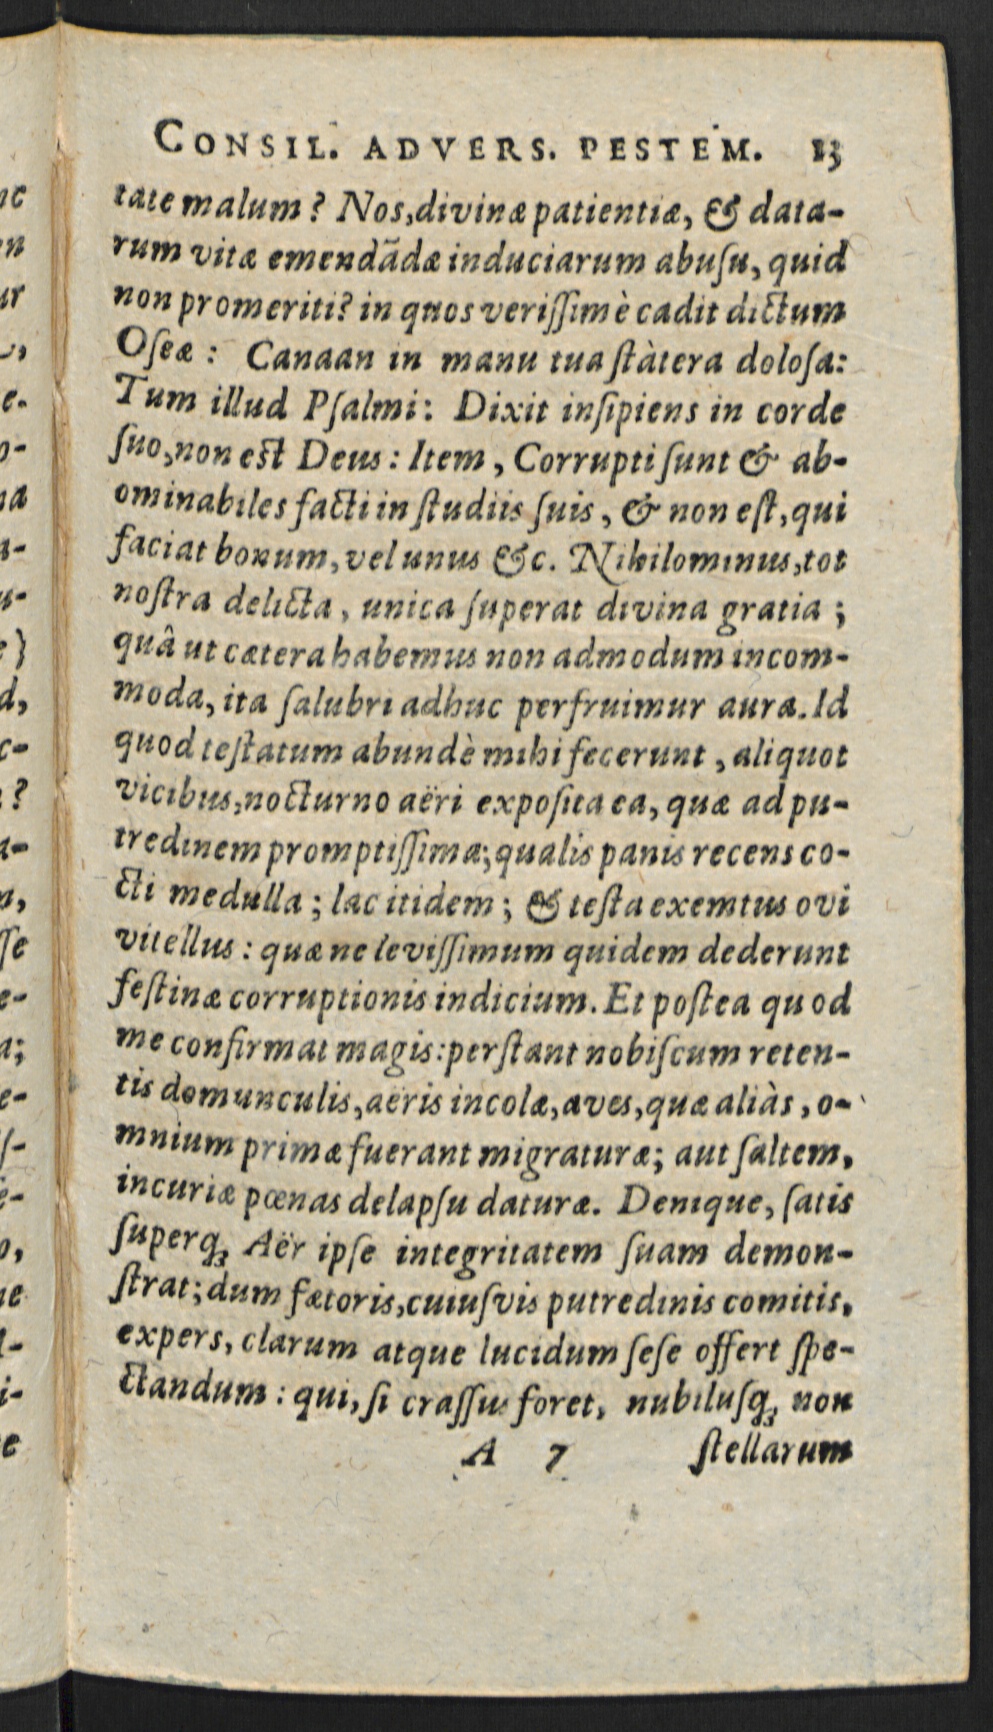 CONSIL. ADVERS. PESTEM. 13
tate malum? Nos, divinæ patientiæ, & data-
rum vitæ emendādæ induciarum abuſu, quid
non promeriti? in quos veriſſimè cadit dictum
Oſeæ: Canaan in manu tua ſtàtera doloſa:
Tum illud Pſalmi: Dixit inſipiens in corde
ſuo, non est Deus: Item, Corrupti ſunt & ab-
ominabiles facti in ſtudiis ſuis, & non eſt, qui
faciat bonum, vel unus &c. Nihilominus, tot
noſtra delicta, unica ſuperat divina gratia;
quâ ut cætera habemus non admodum incom-
moda, ita ſalubri adhuc perfruimur aura. Id
quod teſtatum abundè mihi fecerunt, aliquot
vicibus, nocturno aëri expoſita ea, quæ ad pu-
tredinem promptiſſima; qualis panis recens co-
cti medulla; lac itidem; & teſta exemtus ovi
vitellus: quæ ne leviſſimum quidem dederunt
feſtinæ corruptionis indicium. Et poſtea quod
me confirmat magis: perſtant nobiſcum reten-
tis domunculis, aëris incolæ, aves, quæ aliàs, o-
mnium primæ fuerant migraturæ; aut ſaltem,
incuriæ pœnas delapſu daturæ. Denique, ſatis
ſuperq; Aër ipſe integritatem ſuam demon-
ſtrat; dum fætoris, cuiuſvis putredinis comitis,
expers, clarum atque lucidum ſeſe offert ſpe-
ctandum: qui, ſi craſſus foret, nubiluſq; non
A 7 ſtellarum